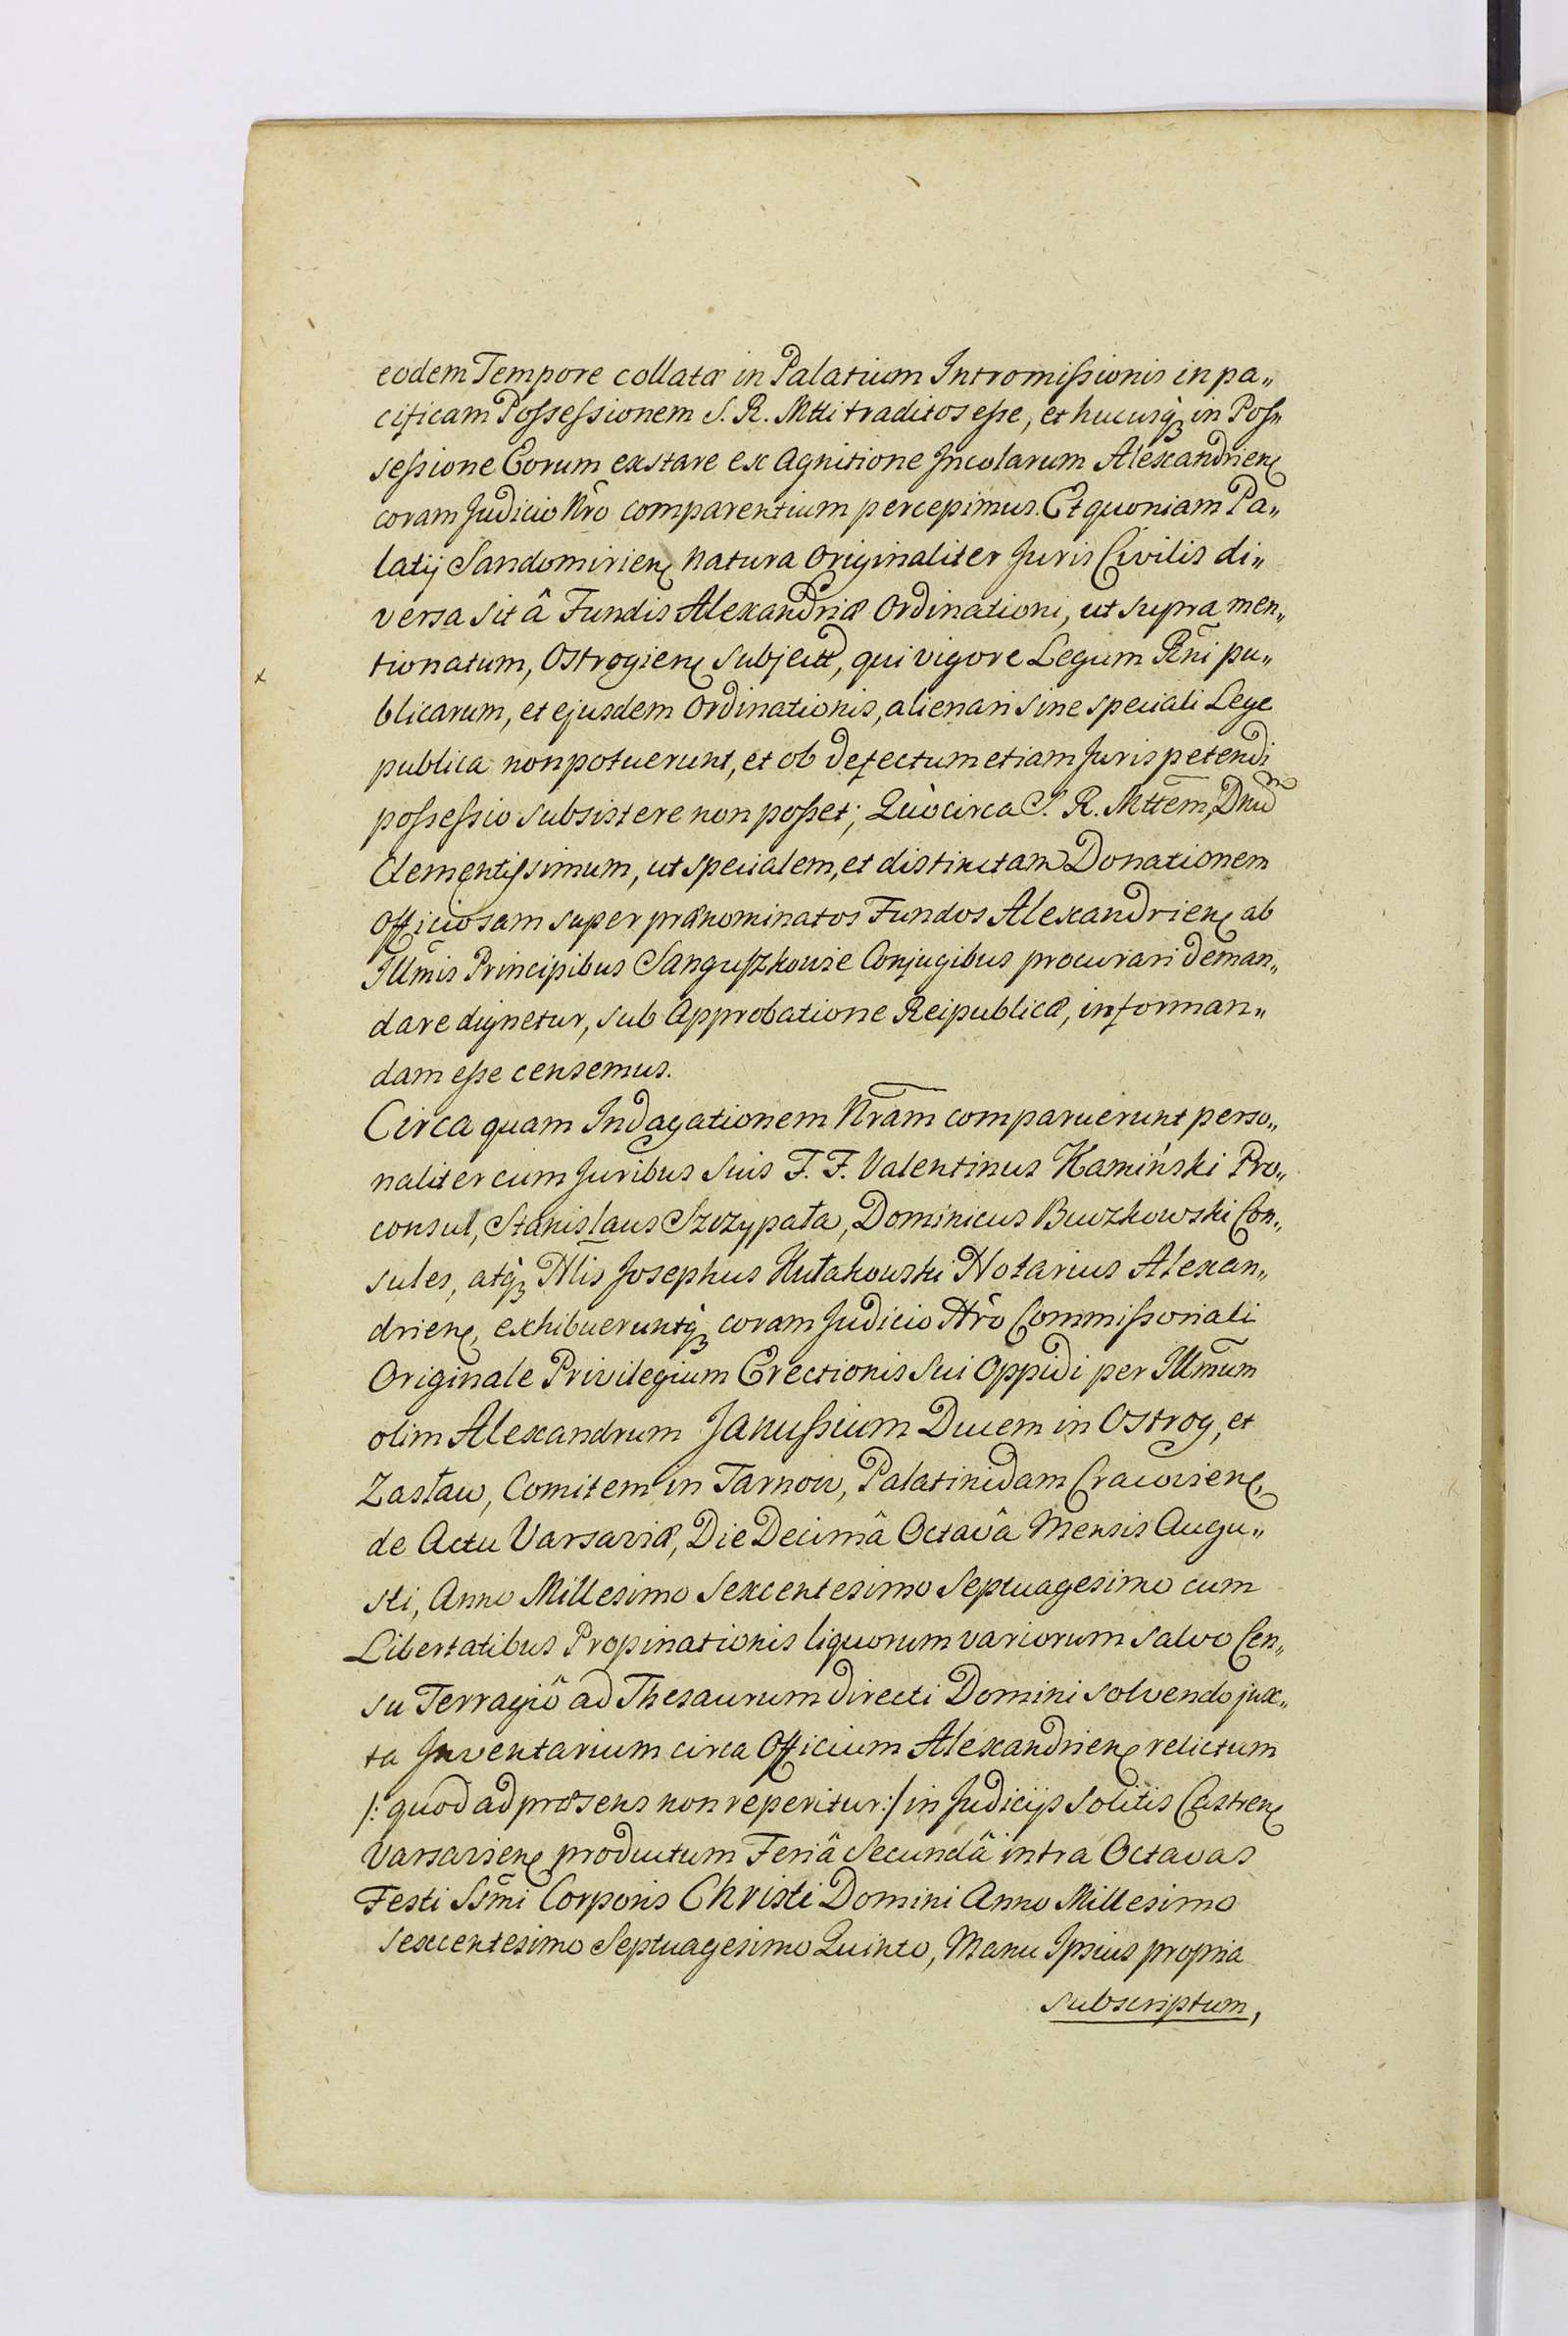 eodem Tempore collatæ in Palatium Intromissionis in pa„
cificam Possessionem S. R. Mtti traditos esse, et hucusq̀ꝫ in Pos„
sessione Eorum exstare ex Agnitione Incolarum Alexandrienꝭ
coram Judicio Nr̃o comparentium percepimus. Et quoniam Pa„
latij Sandomirienꝭ natura originaliter Juris Civilis di„
versa sit â Fundis Alexandriæ Ordinationi, ut supra men„
tionatum, Ostrogienꝭ subjectæ, qui vigore Legum Rñi pu„
x
blicarum, et ejusdem Ordinationis, alienari sine speciali Lege
publica non potuerunt, et ob defectum etiam Juris petendi
possessio subsistere non posset; Quòcirca S. R. Mttẽm, Dnũm
Clementissimum, ut specialem, et distinctam Donationem
officiosam super prænominatos Fundos Alexandrienꝭ ab
Illm̃is Principibus Sanguszkowie Conjugibus procurari deman„
dare dignetur, sub Approbatione Reipublicæ, informan„
dam esse censemus.
Circa quam Indagationem Nr̃am comparuerunt perso„
naliter cum Juribus suis F. F. Valentinus Kamiński Pro„
consul, Stanislaus Szczypała, Dominicus Buczkowski Con„
sules, atq̀ꝫ Nl̃is Josephus Hułakowski Notarius Alexan„
drienꝭ, exhibueruntq̀ꝫ coram Judicio Nr̃o Commissoriali
Originale Privilegium Erectionis sui Oppidi per Illm̃um
olim Alexandrum Janussium Ducem in Ostrog, et
Zasław, Comitem in Tarnow, Palatinidam Cracovienꝭ,
de Actu Varsaviæ, Die Decimâ Octavâ Mensis Augu„
sti, Anno Millesimo Sexcentesimo Septuagesimo cum
Libertatibus Propinationis liquorum variorum salvo Cen„
su Terragiô ad Thesaurum directi Domini solvendo jux„
ta Inventarium circa Officium Alexandrienꝭ relictum
/: quod ad præsens non reperitur :/ in Judicijs solitis Castrenꝭ
Varsavienꝭ productum Feriâ Secundâ intra Octavas
Festi Ssm̃i Corporis Christi Domini Anno Millesimo
Sexcentesimo Septuagesimo Quinto, Manu Ipsius propria
subscriptum,